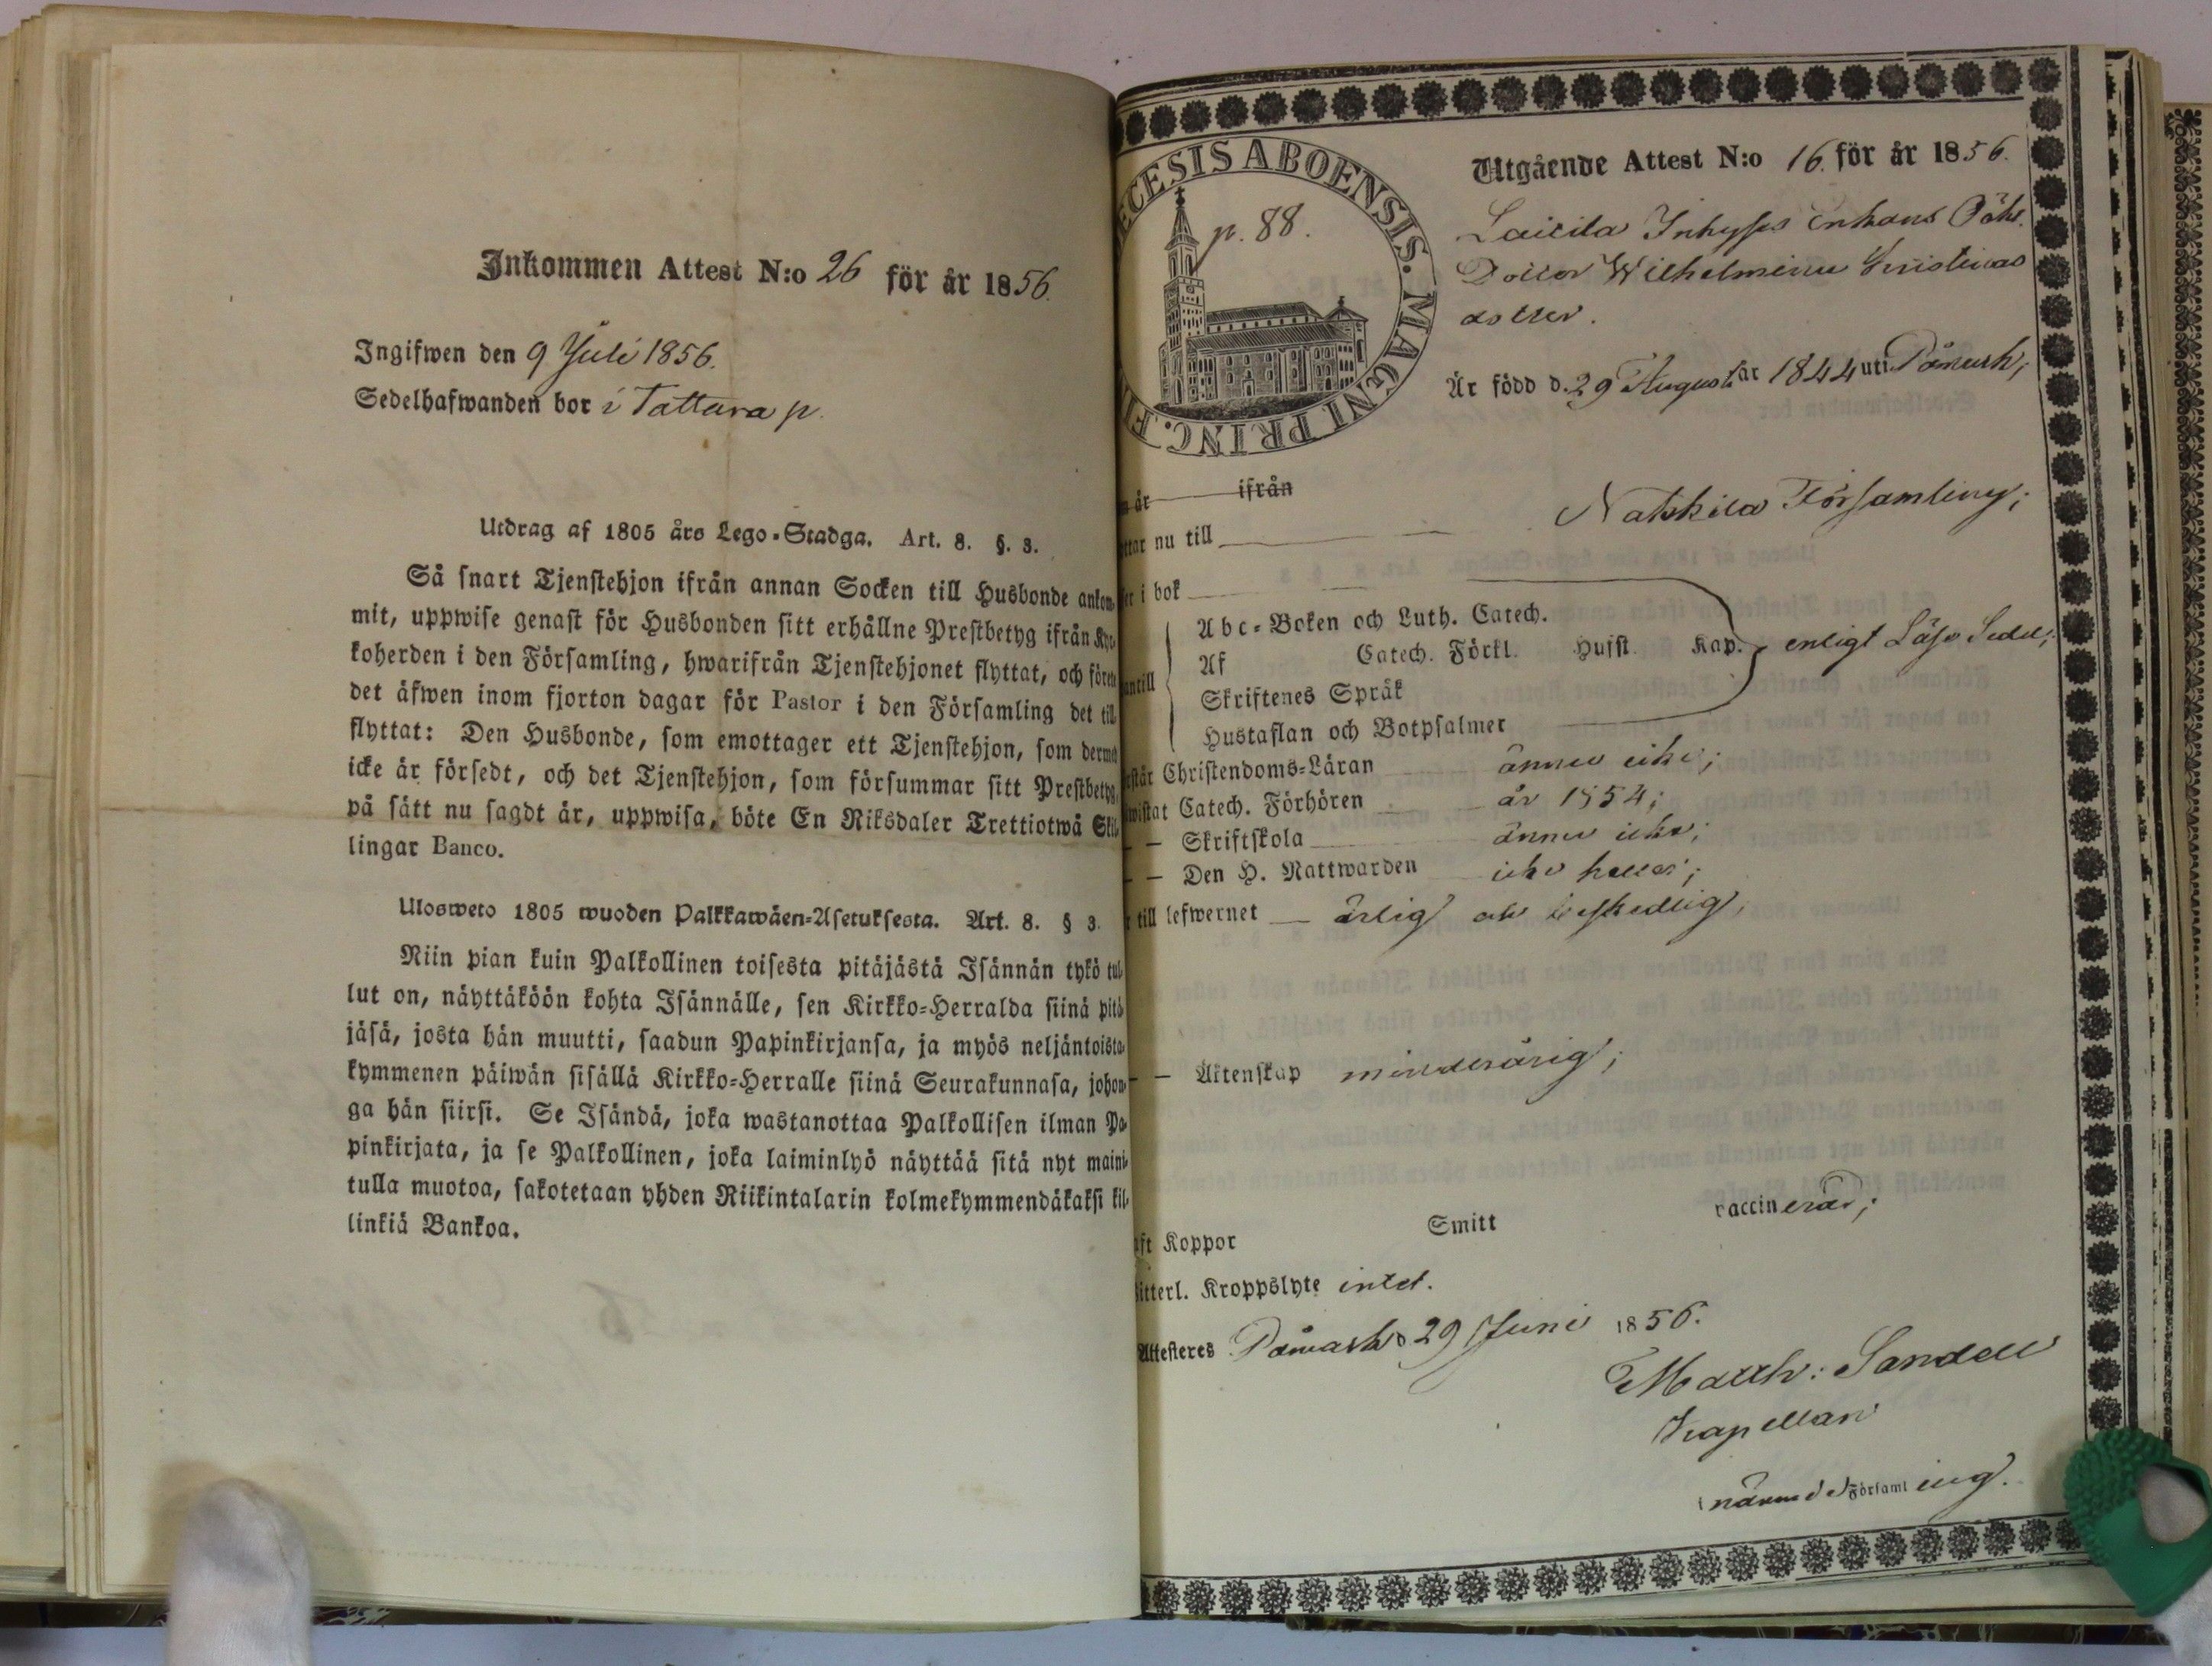 Inkommen Attest N:o 26 för år 1856.
Ingifwen den 9 Juli 1856.
Sedelhafwanden bor i Tattara p.
Utdrag af 1805 års Lego-Stadga. Art. 8. §. 3.
Så snart Tjenstehjon ifrån annan Socken till Husbonde ankom-
mit, uppwise genast för Husbonden sitt erhållne Prestbetyg ifrån Kyr-
koherden i den Församling, hwarifrån Tjenstehjonet flyttat, och förete
det äfwen inom fjorton dagar för Pastor i den Församling det till-
flyttat: Den Husbonde, som emottager ett Tjenstehjon, som dermed
icke är försedt, och det Tjenstehjon, som försummar sitt Prestbetyg,
på sätt nu sagdt är, uppwisa, böte En Riksdaler Trettiotwå Skil-
lingar Banco.
Ulosweto 1805 wuoden Palkkawäen-Asetuksesta. Art. 8. § 3.
Niin pian kuin Palkollinen toisesta pitäjästä Isännän tykö tul-
lut on, näyttäköön kohta Isännälle, sen Kirkko-Herralda siinä pitä-
jäsä, josta hän muutti, saadun Papinkirjansa, ja myös neljäntoista-
kymmenen päiwän sisällä Kirkko-Herralle siinä Seurakunnasa, johon-
ga hän siirsi. Se Isändä, joka wastanottaa Palkollisen ilman Pa-
pinkirjata, ja se Palkollinen, joka laiminlyö näyttää sitä nyt maini-
tulla muotoa, sakotetaan yhden Riikintalarin kolmekymmendäkaksi kil-
linkiä Bankoa.
ECESIS ABOENSIS. MAGNI PRINC. F
p. 88.
Utgående Attest N:o 16. för år 1856.
Laitila Inhyses Enkans
Dotter Wilhelmina Kristinas
dotter.
Är född d. 29 August år 1844 uti Pämark;
år ifrån
ttar nu till Natskila Församling;
er i bok
Abc-Boken och Luth. Catech.
Af Catech. Förkl. Husst. Kap. enligt Läse Sedel;
antill
Skriftenes Språk
Hustaflan och Botpsalmer
står Christendoms-Läran ännu icke;
wistat Catech. Förhören år 1854;
— Skriftskola ännu icke;
— Den H. Nattwarden icke heller;
till lefwernet ärlig och beskedlig;
— Äktenskap minderårig;
ft Koppor Smitt vaccinerad;
itterl. Kroppslyte intet.
Attesteres Påmark d 29 Juni 1856.
Matth: Sandell
Kapellan
i nämnde Församling.